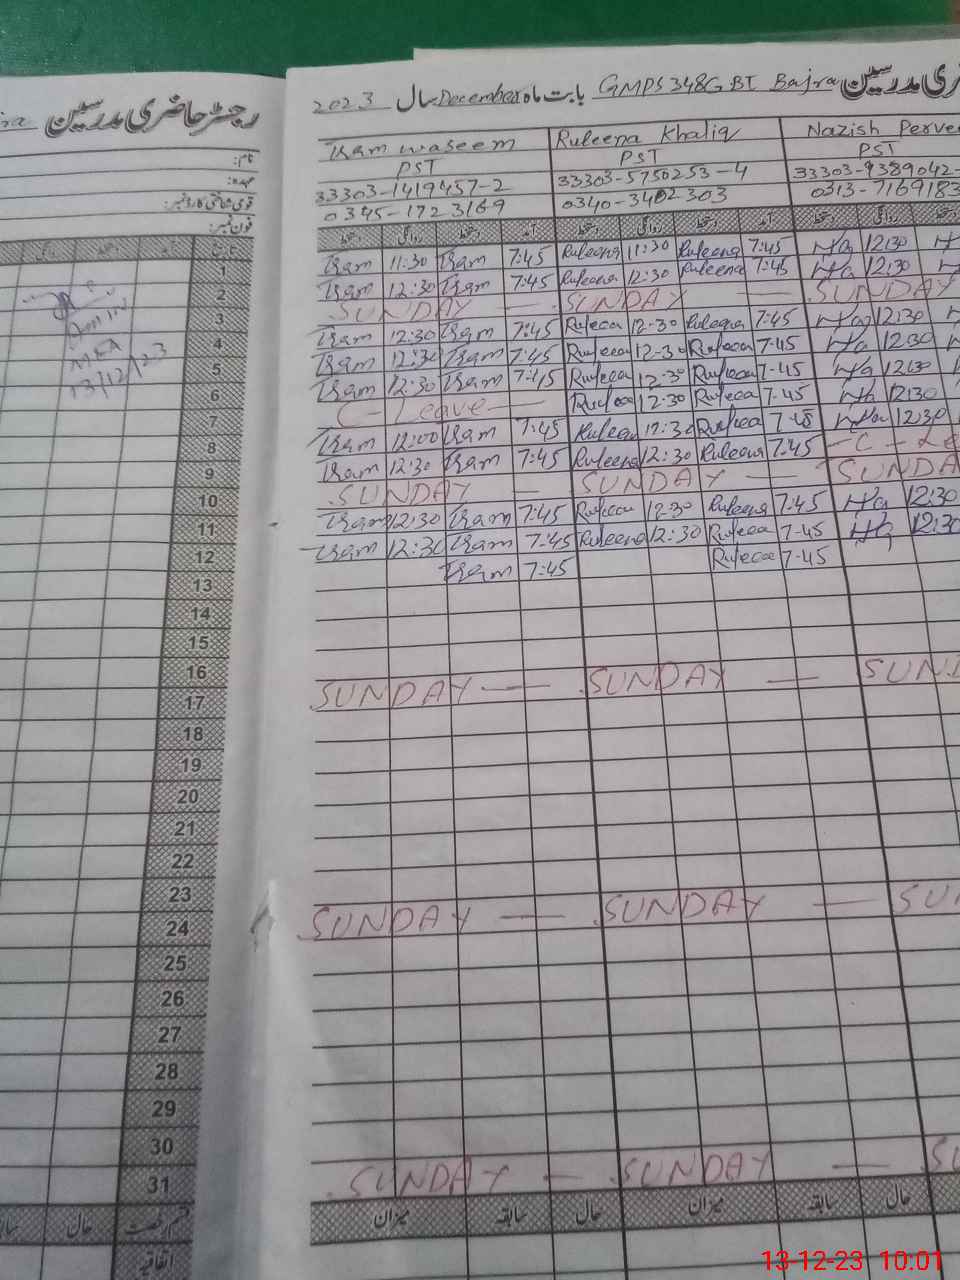 رجسٹر حاضری مدرسین
نام:
عہدہ:
قومی شناختی کارڈ نمبر:
فون نمبر:
تاریخ آمد دستخط روانگی
1
2
3
4
5
6
7
8
9
10
11
12
13
14
15
16
17
18
19
20
21
22
23
24
25
26
27
28
29
30
31
قسم رخصت حال
اتفاقیہ
MEA
13/12/23
2023 سال December بابت ماہ GMPS 348GBT Bajra رجسٹر حاضری مدرسین
Iram waseem Ruleena Khaliq Nazish Perve
PST PST PST
33303-1419457-2 33303-5750253-4 33303-9389042-
0345-1723169 0340-3402303 0313-7169183
دستخط روانگی دستخط آمد دستخط روانگی دستخط آمد دستخط روانگی
Iram 11:30 Iram 7:45 Ruleena 11:30 Ruleena 7:45 12:30
Iram 12:30 Iram 7:45 Ruleena 12:30 Ruleena 7:45 12:30
SUNDAY — SUNDAY — SUNDAY
Iram 12:30 Iram 7:45 12:30 7:45 12:30
Iram 12:30 Iram 7:45 12:30 7:45 12:30
Iram 12:30 Iram 7:45 12:30 7:45 12:30
C- Leave — 12:30 7:45 12:30
Iram 12:00 Iram 7:45 12:30 7:45 12:30
Iram 12:30 Iram 7:45 Ruleena 12:30 Ruleena 7:45 -C-Le
SUNDAY — SUNDAY — SUNDA
Iram 12:30 Iram 7:45 12:30 Ruleena 7:45 12:30
Iram 12:30 Iram 7:45 Ruleena 12:30 7:45 12:30
Iram 7:45 7:45
SUNDAY — SUNDAY — SUND
SUNDAY — SUNDAY — SU
SUNDAY — SUNDAY — SU
میزان سابقہ حال میزان سابقہ حال
13-12-23 10:01